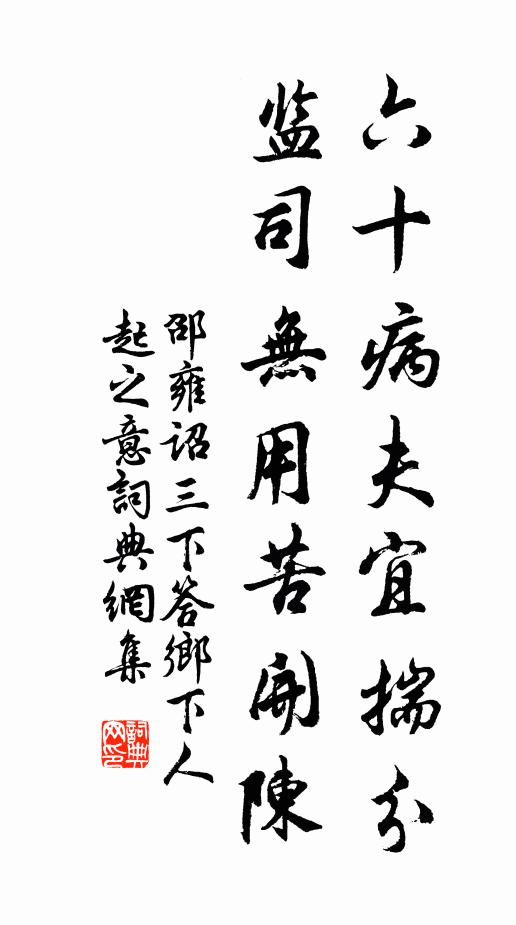 六十病夫宜揣分
监司無用苦開陳
邵雍詔三下答鄉下人
起之意詞典網集
詞典網印